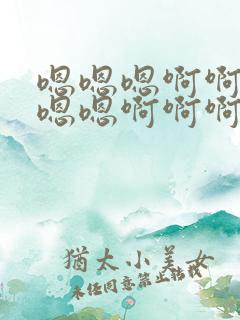 嗯嗯嗯啊啊
嗯嗯啊啊啊
犹太小美女
未经同意禁止转载